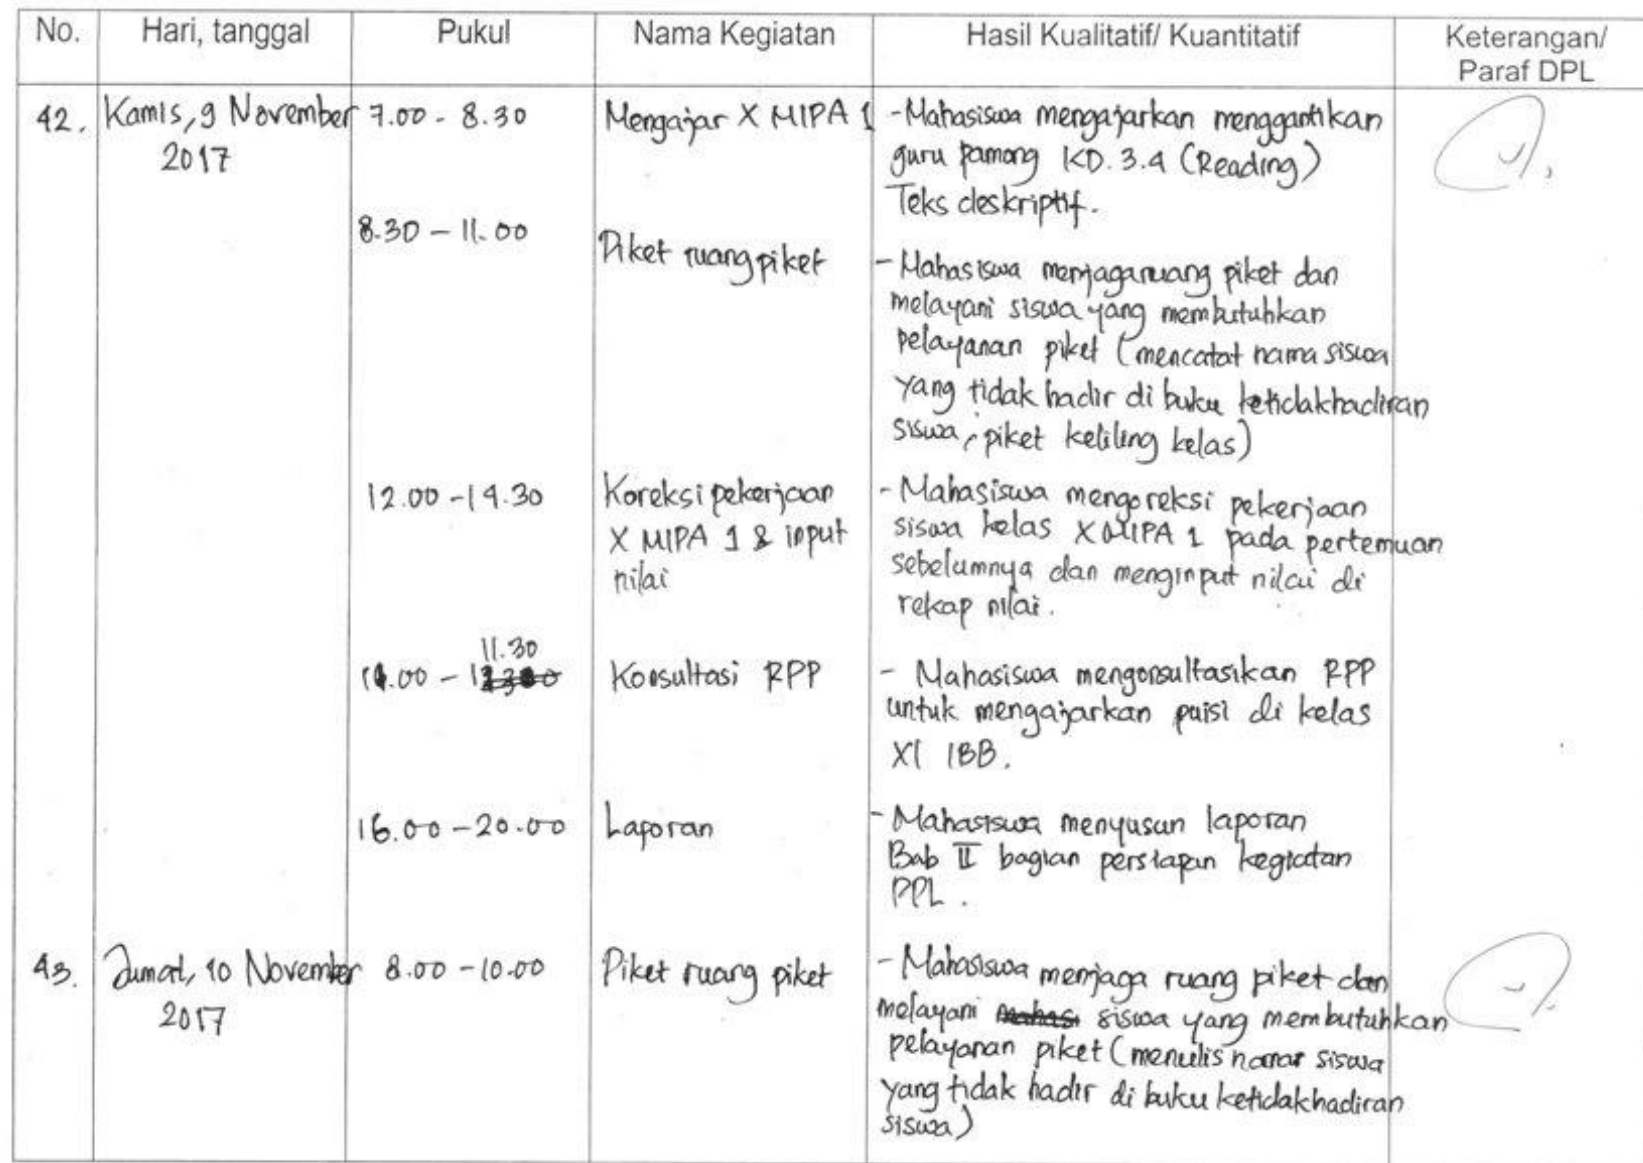 No. Hari, tanggal Pukul Nama Kegiatan Hasil Kualitatif/ Kuantitatif Keterangan/
Paraf DPL
42. Kamis, 9 November 7.00 - 8.30 Mengajar X MIPA 1 - Mahasiswa mengajarkan menggantikan
2017 guru pamong KD. 3.4 (Reading)
Teks deskriptif.
8.30 - 11.00 Piket ruang piket - Mahasiswa menjaga ruang piket dan
melayani siswa yang membutuhkan
pelayanan piket (mencatat nama siswa
yang tidak hadir di buku ketidakhadiran
siswa, piket keliling kelas)
12.00 - 14.30 Koreksi pekerjaan - Mahasiswa mengoreksi pekerjaan
X MIPA 1 & input siswa kelas X MIPA 1 pada pertemuan
nilai sebelumnya dan menginput nilai di
rekap nilai.
11.30
11.00 - Konsultasi RPP - Mahasiswa mengonsultasikan RPP
untuk mengajarkan puisi di kelas
XI IBB.
16.00 - 20.00 Laporan - Mahasiswa menyusun laporan
Bab II bagian persiapan kegiatan
PPL.
43. Jumat, 10 November 8.00 - 10.00 Piket ruang piket - Mahasiswa menjaga ruang piket dan
2017 melayani siswa yang membutuhkan
pelayanan piket (menulis nama siswa
yang tidak hadir di buku ketidakhadiran
siswa)